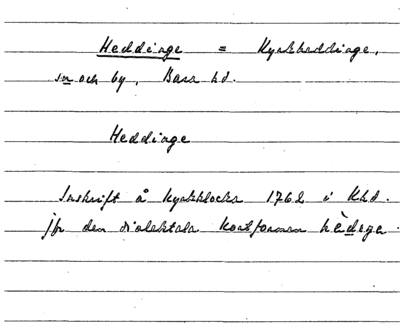 Heddinge = Kyrkheddinge,
sn och by, Bara hd.
Heddinge
Inskrift å kyrkklocka 1762 i Khd.
jfr den dialektala kortformen hèdinge.